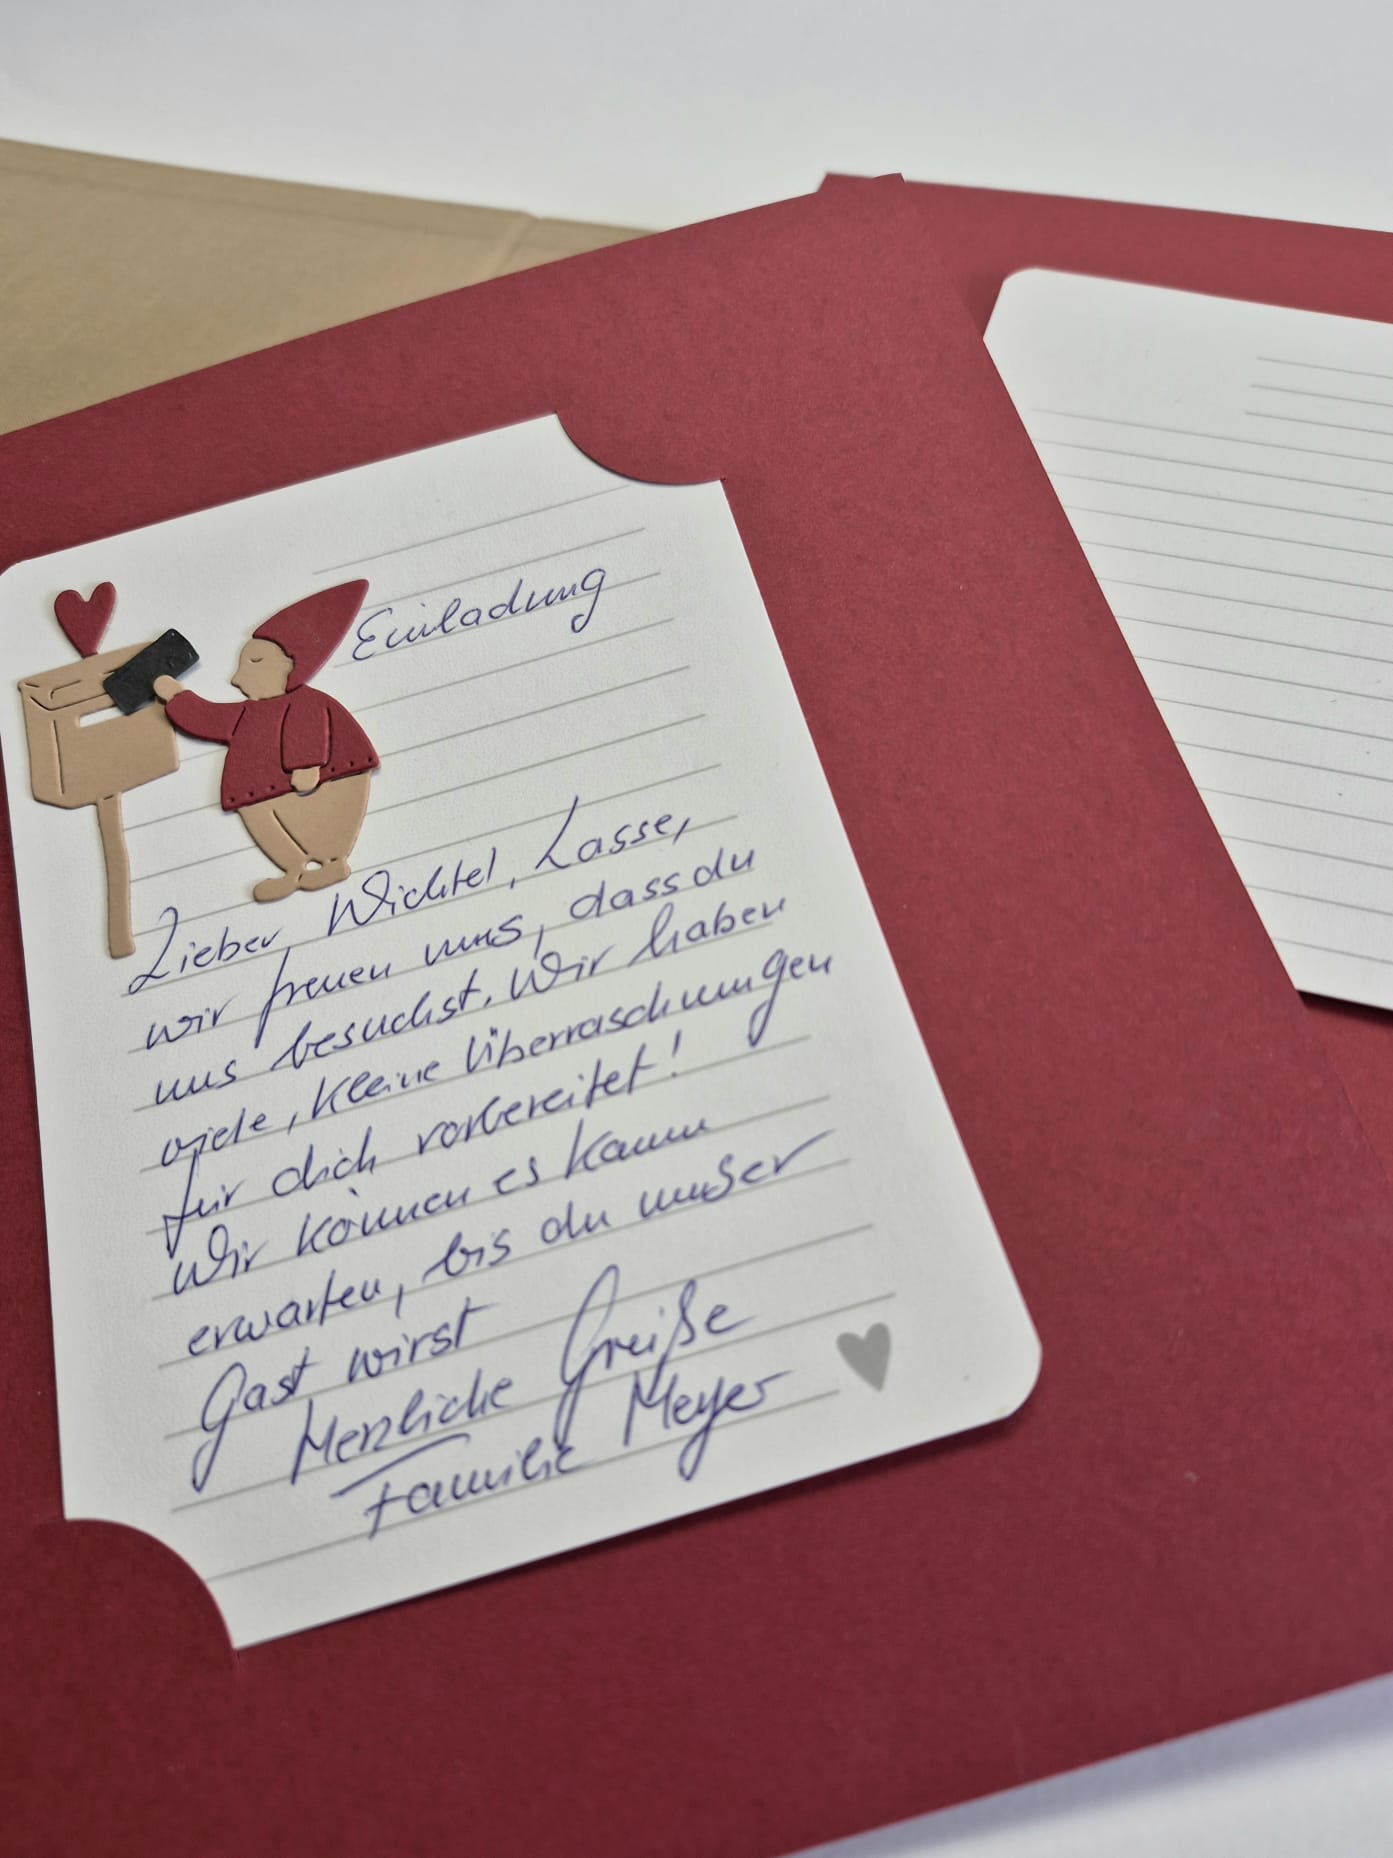 Einladung
Lieber, Wichtel, Lasse,
wir freuen uns, dass du
uns besuchst. Wir haben
viele, kleine Überraschungen
für dich vorbereitet!
Wir können es kaum
erwarten, bis du unser
Gast wirst
Herzliche Grüße
Familie Meyer